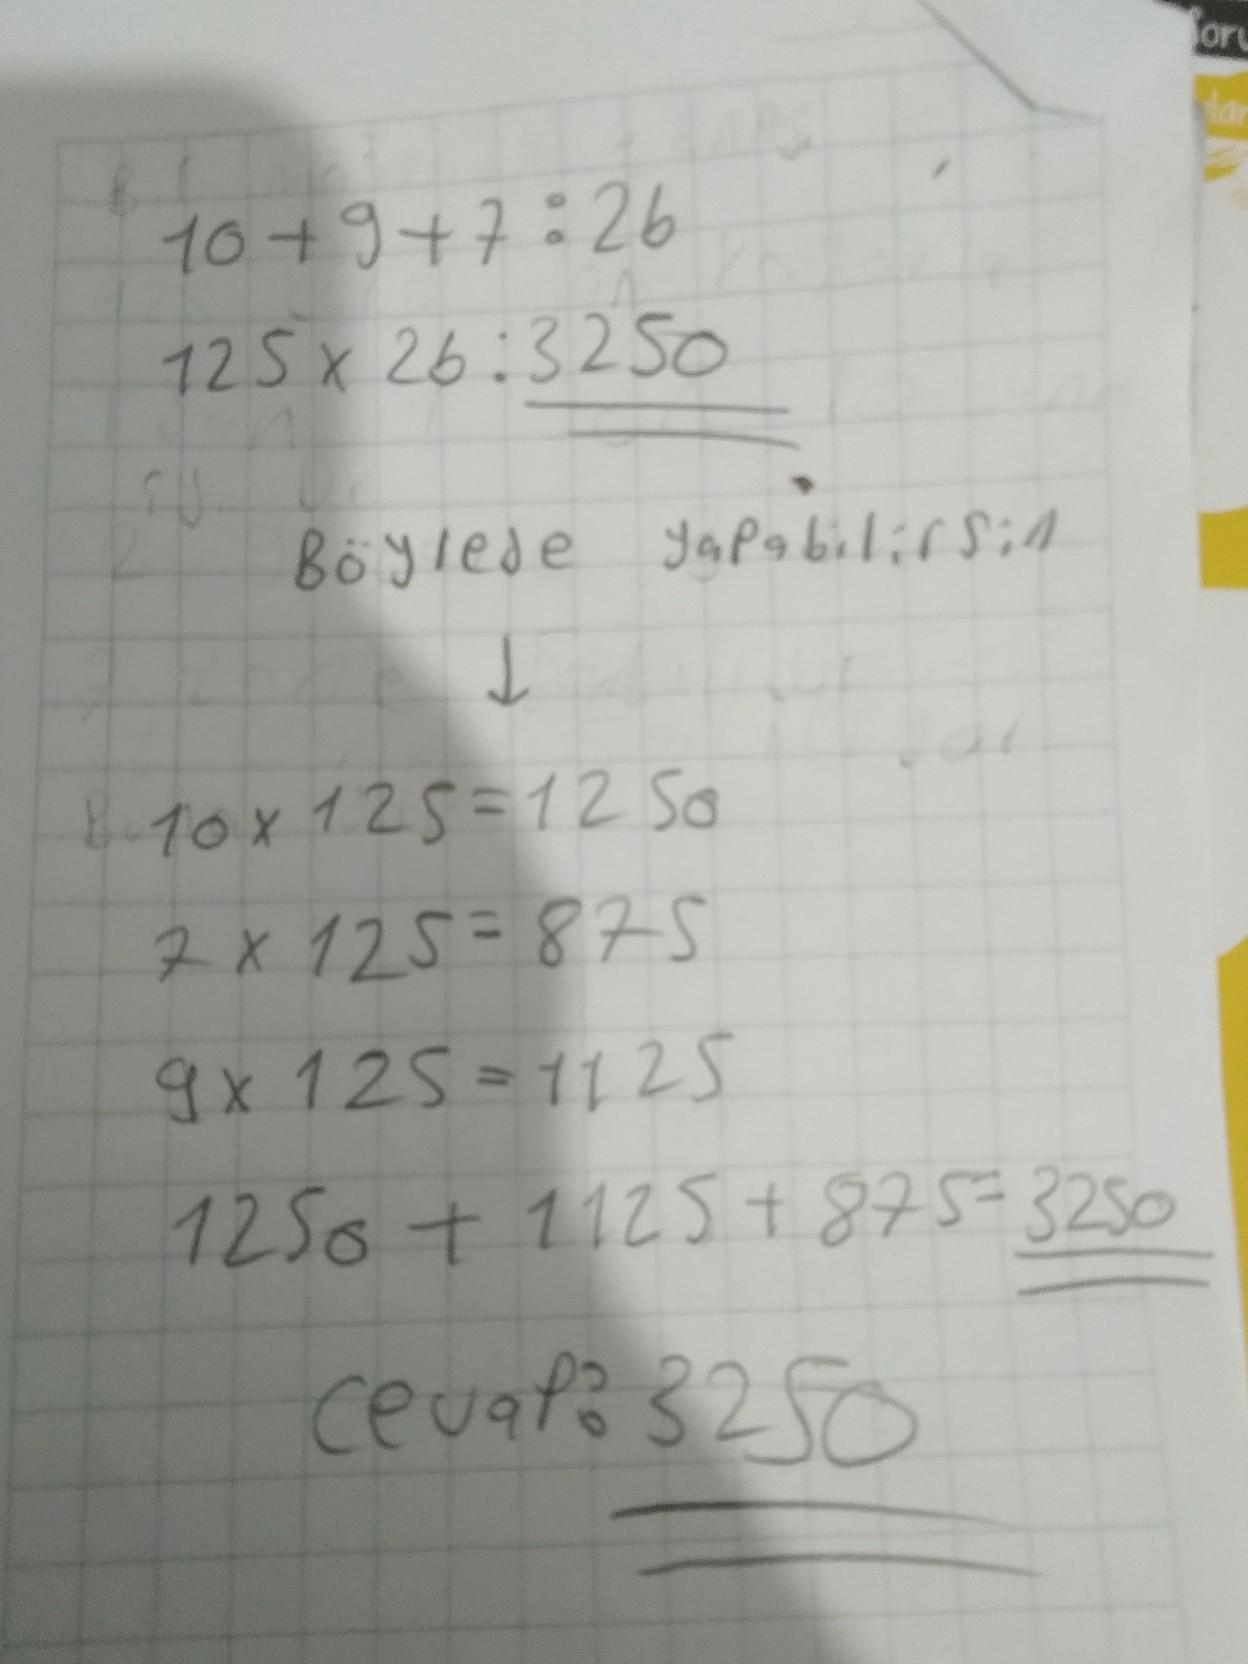 10+9+7:26
125x26:3250
Böylede yapabilirsin
↓
10x125=1250
7x125=875
9x125=1125
1250+1125+875=3250
cevap:3250